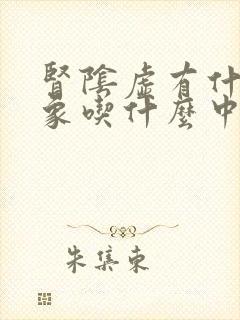 腎陰虛有什
象喫什麼中
朱集東